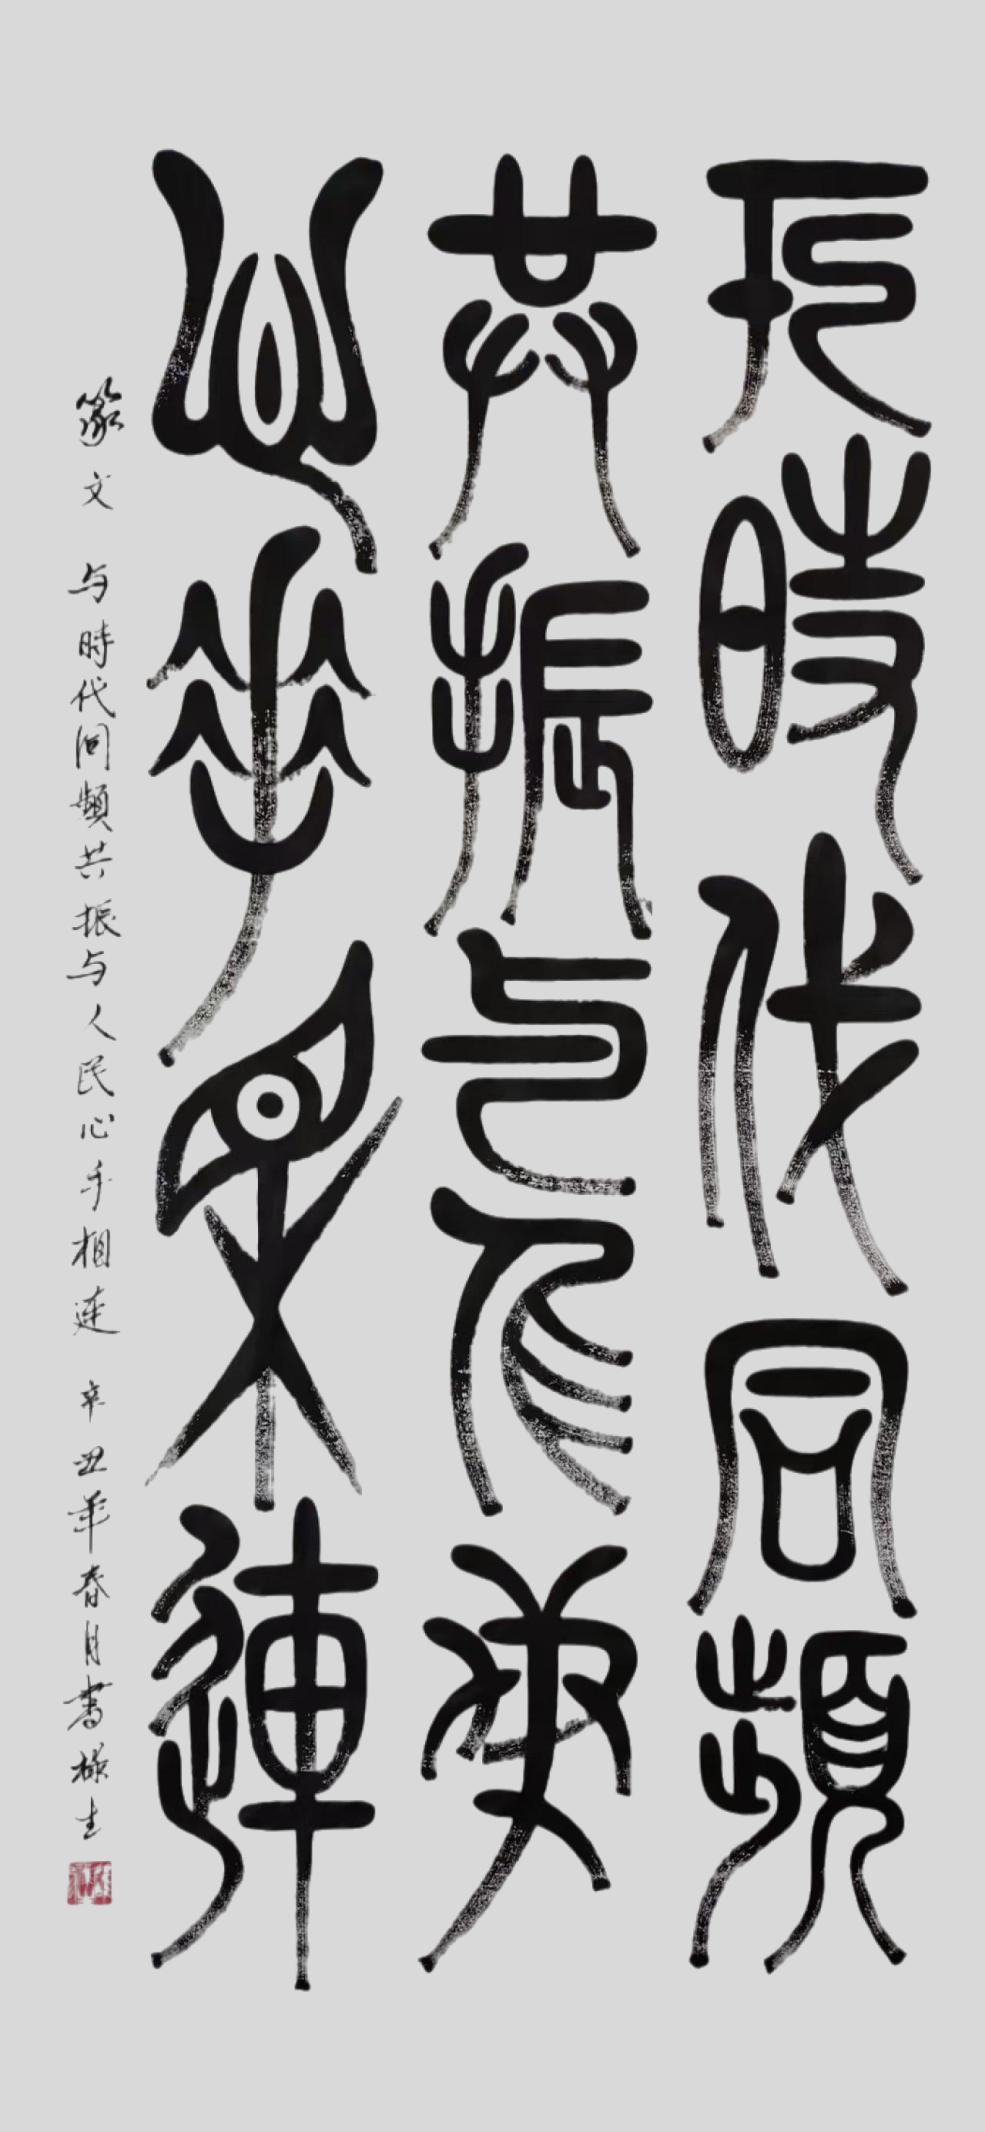 与時代同頻
共振与人民
心手相連
篆文 与時代同頻共振与人民心手相连 辛丑年春月書 様生